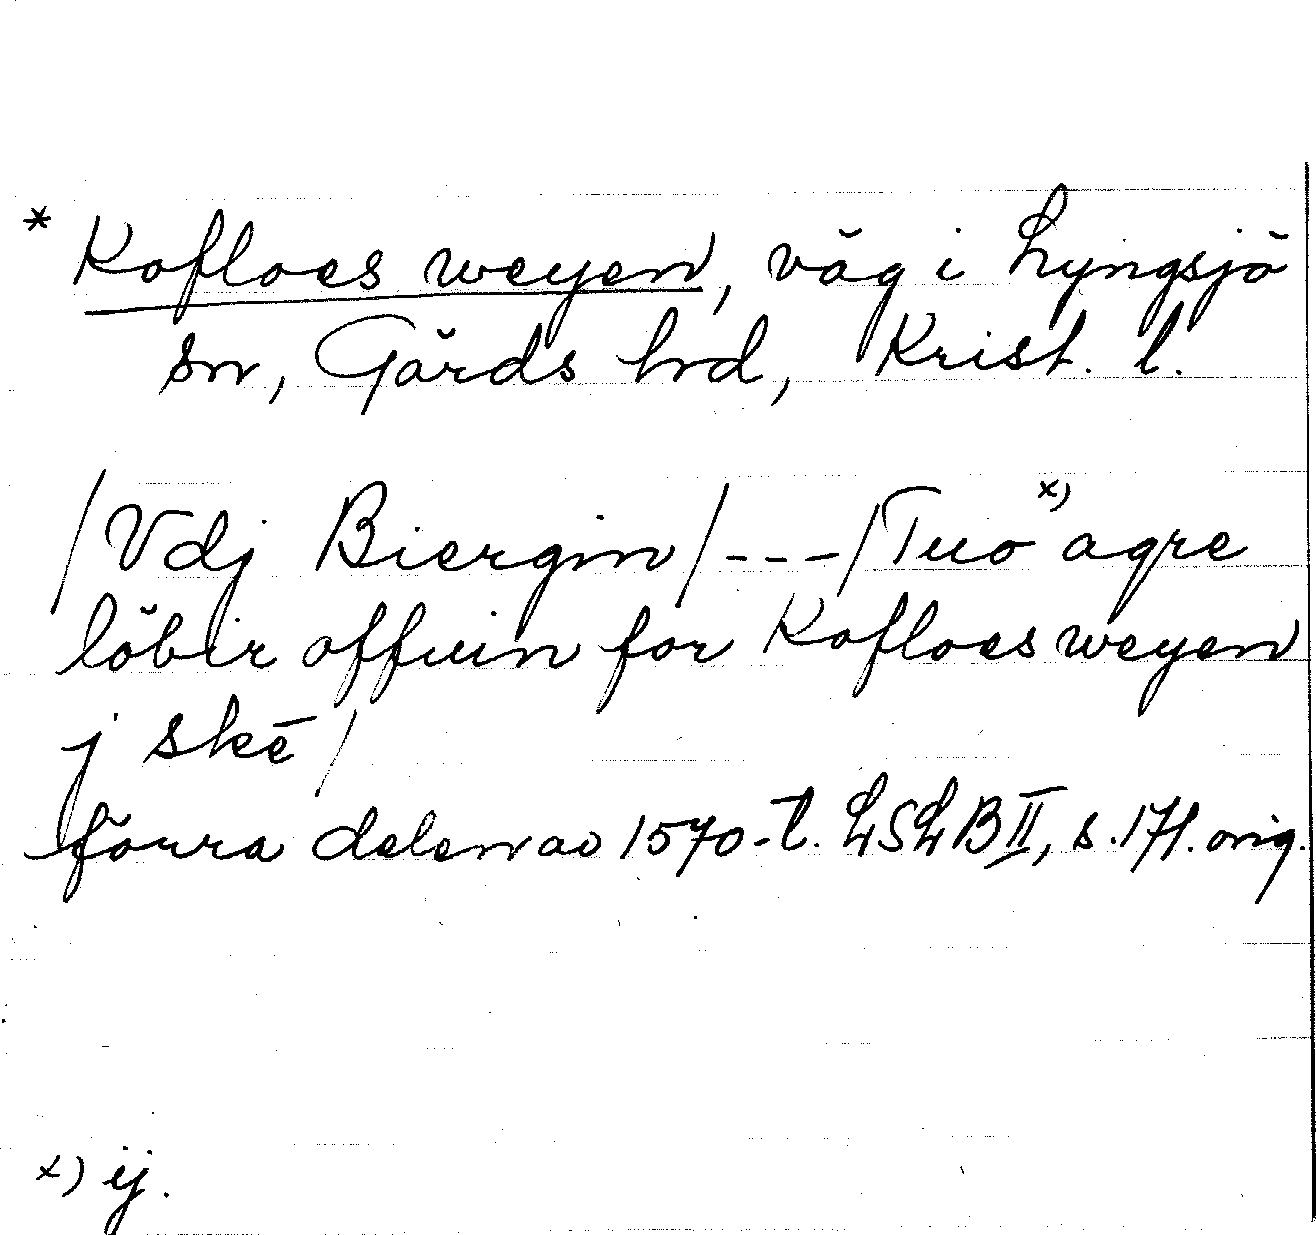 * Kofloes weyen, väg i Lyngsjö
sn, Gärds hrd, Krist. l.
/Vdj Biergin/---/Tuo x) agre
löbir offuin for Kofloes weyen
j skē/
förra delen av 1570-t. LSLB II, s. 171. orig.
x) ij.